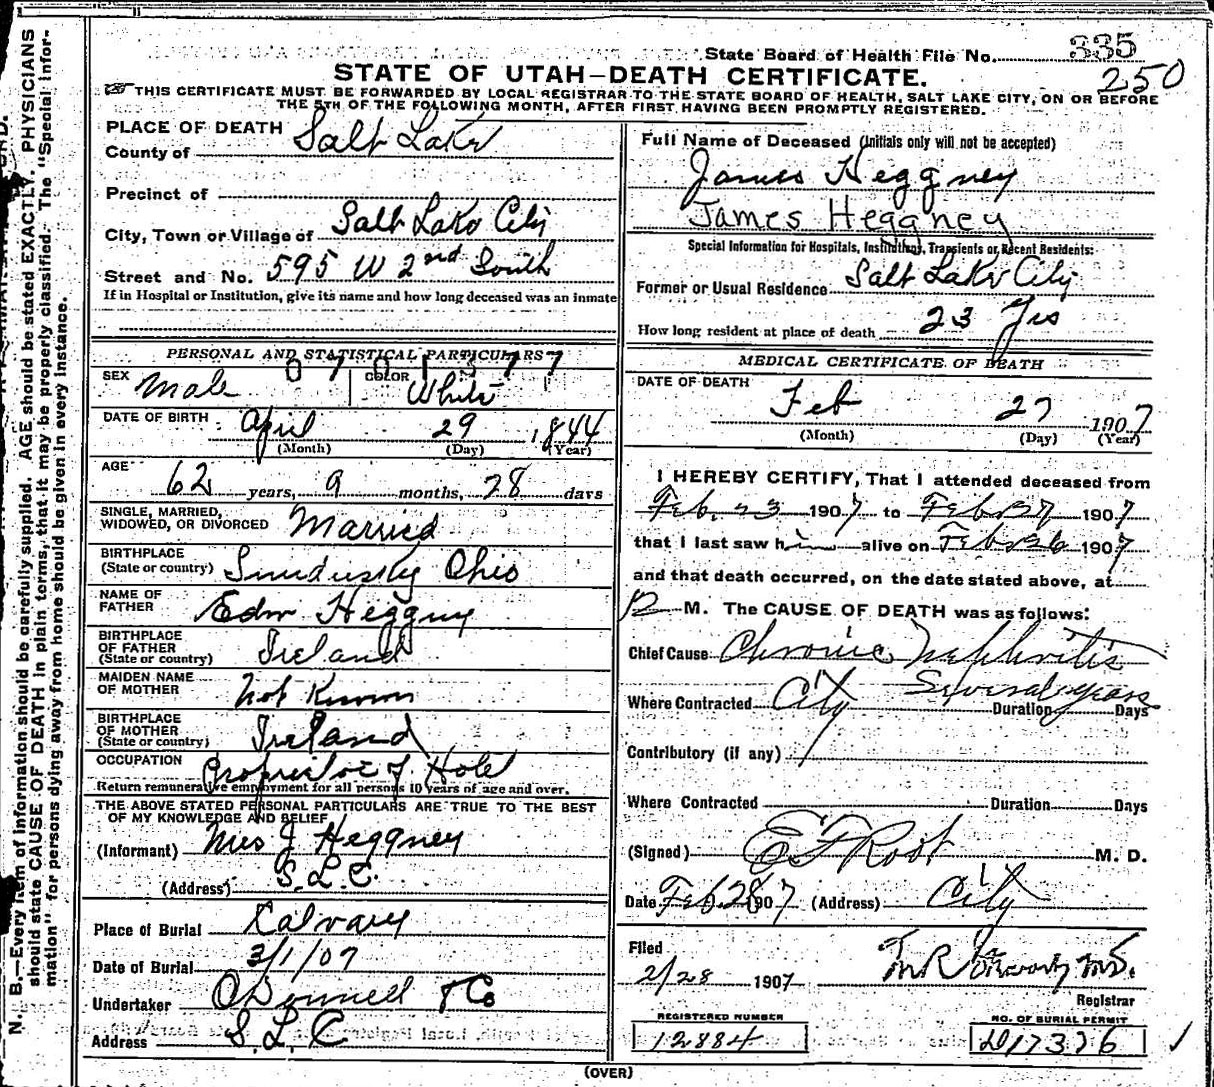 State Board of Health File No. 335
250
STATE OF UTAH—DEATH CERTIFICATE.
THIS CERTIFICATE MUST BE FORWARDED BY LOCAL REGISTRAR TO THE STATE BOARD OF HEALTH, SALT LAKE CITY, ON OR BEFORE
THE 5TH OF THE FOLLOWING MONTH, AFTER FIRST HAVING BEEN PROMPTLY REGISTERED.
PLACE OF DEATH
County of Salt Lake
Precinct of
City, Town or Village of Salt Lake City
Street and No. 595 W 2nd South
If in Hospital or Institution, give its name and how long deceased was an inmate
PERSONAL AND STATISTICAL PARTICULARS
SEX Male COLOR White
DATE OF BIRTH April 29, 1844
(Month) (Day) (Year)
AGE 62 years, 9 months, 28 days
SINGLE, MARRIED,
WIDOWED, OR DIVORCED Married
BIRTHPLACE
(State or country) Sundusky Ohio
NAME OF
FATHER Edw Heggny
BIRTHPLACE
OF FATHER
(State or country) Ireland
MAIDEN NAME
OF MOTHER Not Known
BIRTHPLACE
OF MOTHER
(State or country) Ireland
OCCUPATION Proprietor of Hotel
Return remunerative employment for all persons 10 years of age and over.
THE ABOVE STATED PERSONAL PARTICULARS ARE TRUE TO THE BEST
OF MY KNOWLEDGE AND BELIEF
(Informant) Mrs J Heggney
(Address) S.L.C.
Place of Burial Calvary
Date of Burial 3/1/07
Undertaker O'Donnell & Co
Address S.L.C
Full Name of Deceased (Initials only will not be accepted)
James Heggney
James Heggney
Special Information for Hospitals, Institutions, Transients or Recent Residents:
Former or Usual Residence Salt Lake City
How long resident at place of death 23 Yrs
MEDICAL CERTIFICATE OF DEATH
DATE OF DEATH
Feb 27 1907
(Month) (Day) (Year)
I HEREBY CERTIFY, That I attended deceased from
Feb. 23 1907 to Feb 27 1907
that I last saw him alive on Feb 26 1907
and that death occurred, on the date stated above, at
12 M. The CAUSE OF DEATH was as follows:
Chief Cause Chronic Nephritis
Where Contracted City Several years Duration Days
Contributory (if any)
Where Contracted Duration Days
(Signed) E F Root M. D.
Date Feb 28 1907 (Address) City
Filed
2/28 1907
Registrar
REGISTERED NUMBER
12884
NO. OF BURIAL PERMIT
(OVER)
N. B.—Every item of information should be carefully supplied. AGE should be stated EXACTLY. PHYSICIANS
should state CAUSE OF DEATH in plain terms, that it may be properly classified. The "Special Information"
for persons dying away from home should be given in every instance.